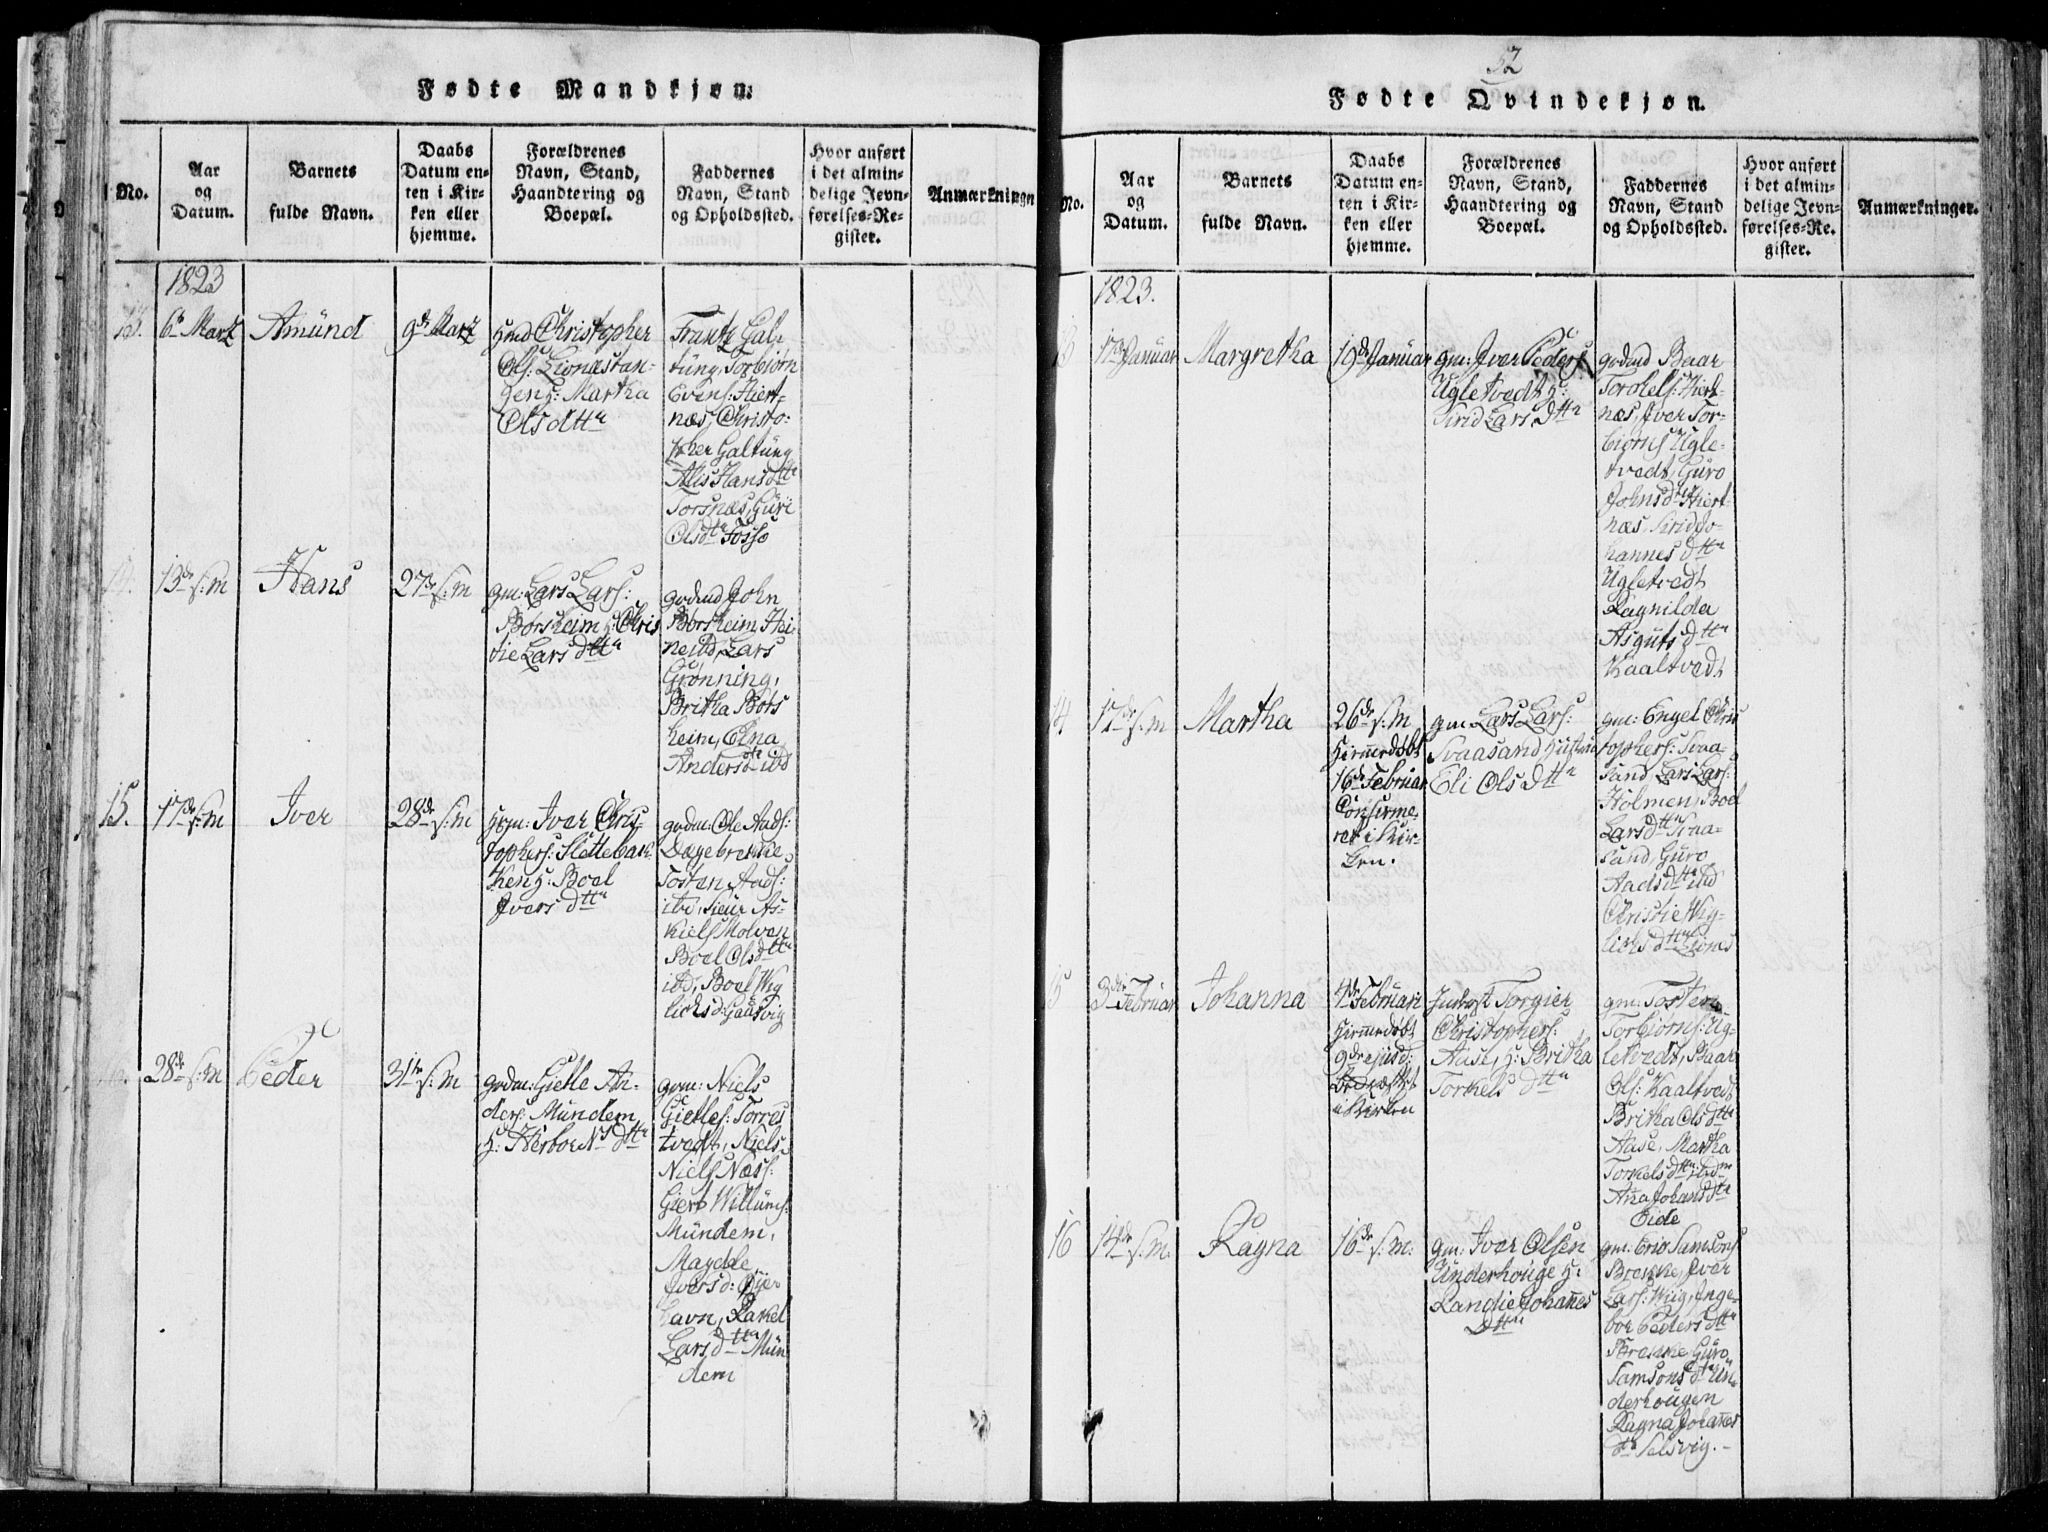 Fødte Mandkjøn.
No.
Aar
og
Datum.
Barnets
fulde Navn.
Daabs
Datum en-
ten i Kir-
ken eller
hjemme.
Forældrenes
Navn, Stand,
Haandtering og
Boepæl.
Faddernes
Navn, Stand
og Opholdssted.
Hvor anført
i det almin-
delige Jevn-
førelses-Re-
gister.
Anmærkninger
1823
13.
6te Martz
Amünd
9de Martz
Christopher
Ols: Lionæstan-
gen H: Martha
Olsdttr
Frantz Gal-
tüng, Torbiørn
Evens: Hiert-
næs, Christo-
pher Galtüng
Alis Hansdttr
Torsnæs, Güri
Olsdttr Fosse
14.
13de s:m
Hans
27de s:m
gm: Lars Lars:
Børsheim H: Chris
tie Lars dttr
godmd John
Børsheim, Hei-
ne ibd, Lars
Grønning,
Britha Børs
heim, Elna
Andersdttr ibd
15.
17de s:m
Iver
28de s:m
Iver Chris
tophers: Slettebak
ken H: Boel
Ivers dttr
godm: Ole Aads:
Dagebrekke
Tosten Aads:
ibd, Siur As-
kiels Molven
Boel Olsdttr
ibd, Boel Wig
lichsd: Gaasvig
28de s:m
Peder
31te s:m
godm: Gielle An-
ders: Mündem
H: Herbor Ns dttr
gm: Niels
Gielles: Torres
tvedt, Niels
Niels Næss:
Giert Willums:
Mündem,
Magdele
Iversd: Øjer
havn, Rakel
Larsdttr Mün
dem
52
Fødte Qvindekjøn.
No.
Aar
og
Datum.
Barnets
fulde Navn.
Daabs
Datum en-
ten i Kir-
ken eller
hjemme.
Forældrenes
Navn, Stand,
Haandtering og
Boepæl.
Faddernes
Navn, Stand
og Opholdssted.
Hvor anført
i det almin-
delige Jevn-
førelses-Re-
gister.
Anmærkninger.
1823.
13
17de Januar
Margretha
19de Januar
gm: Iver Peders
Ugletvedt H:
Sirid Lars Dttr
godmd Baar
Torkels: Hiert-
næs, Iver Tor-
biørns Ugle-
tvedt, Guro
Johnsdttr Hiert
næs, Sirid Jo-
hannes dttr
Ugletvedt
Ragnilda
Asguts dttr
Kaaltvedt
14
17de s:m
Martha
26de s:m
Hiemedøbt
16de Februar
Confirme-
ret i Kir-
ken.
gm Lars Lars:
Svaasand Hustrue
Eli Ols Dttr
gm: Engel Chris
tophers: Svaa-
sand, Lars Lars:
Holmen, Boel
Larsdttr Svaa-
sand, Guro
Aadsdttr ibd
Christie Wig-
lichsdttr Lionæs
15
3die Februar
Johanna
4de Februari
Hiemedøbt
9de ejusd:
i Kirken
Torgier
Christophers:
Aase, H: Britha
Torkels Dttr
gm: Tosten
Torbiørns: Ug-
letvedt, Baar
Ols: Kaaltvedt
Britha Olsdttr
Aase, Martha
Torkelsdttr ibdm
Ana Johansdttr
Eide
16
14de s:m.
Ragna
16de s:m:
gm: Iver Olsen
Underhouge H:
Randie Johañes
Dttr
gm: Eric Samsons
Brekke, Iver
Lars: Wiig, Inge-
bor Peders dttr
Brekke, Guro
Samsonsdtr Un-
derhougen
Ragna Johañes
dtr Selsvig.